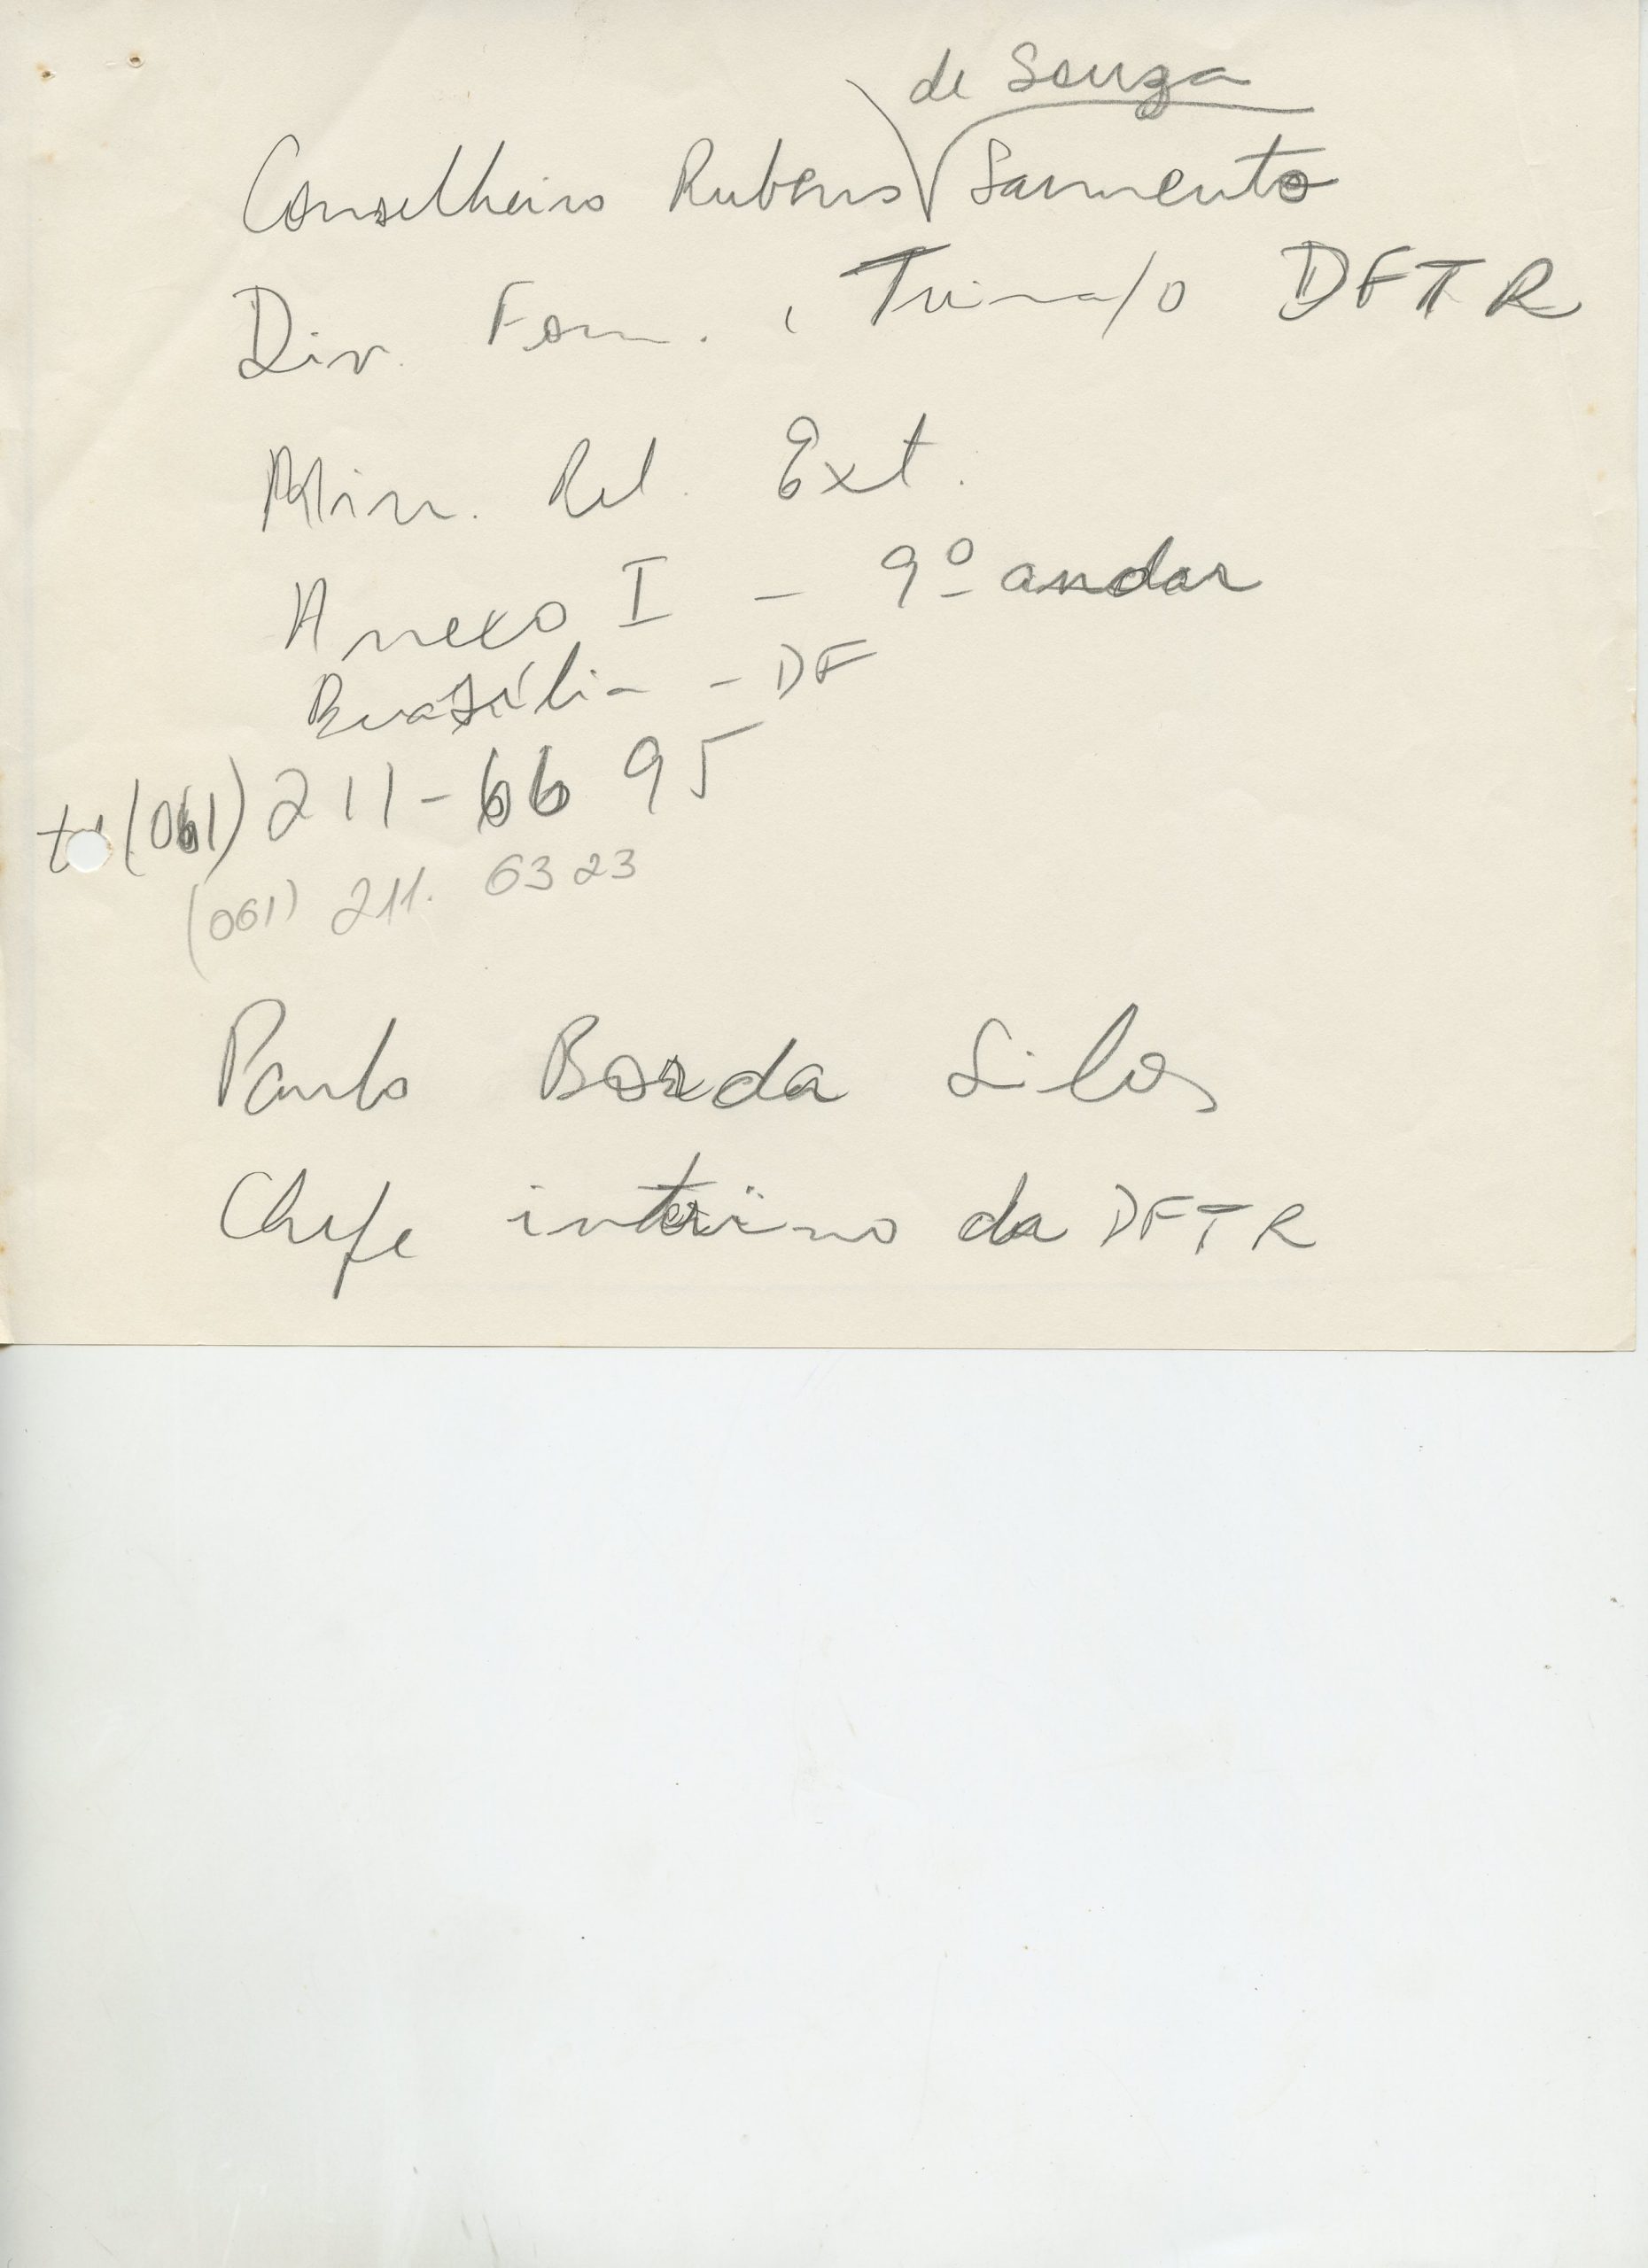 de Souza
Conselheiro Rubens Sarmento
Div. Fom. DFTR
Min. Rel. Ext.
Anexo I - 9º andar
Brasília - DF
tel (061) 211-6695
(061) 211. 6323
Paulo Borda Silos
Chefe interino da DFTR